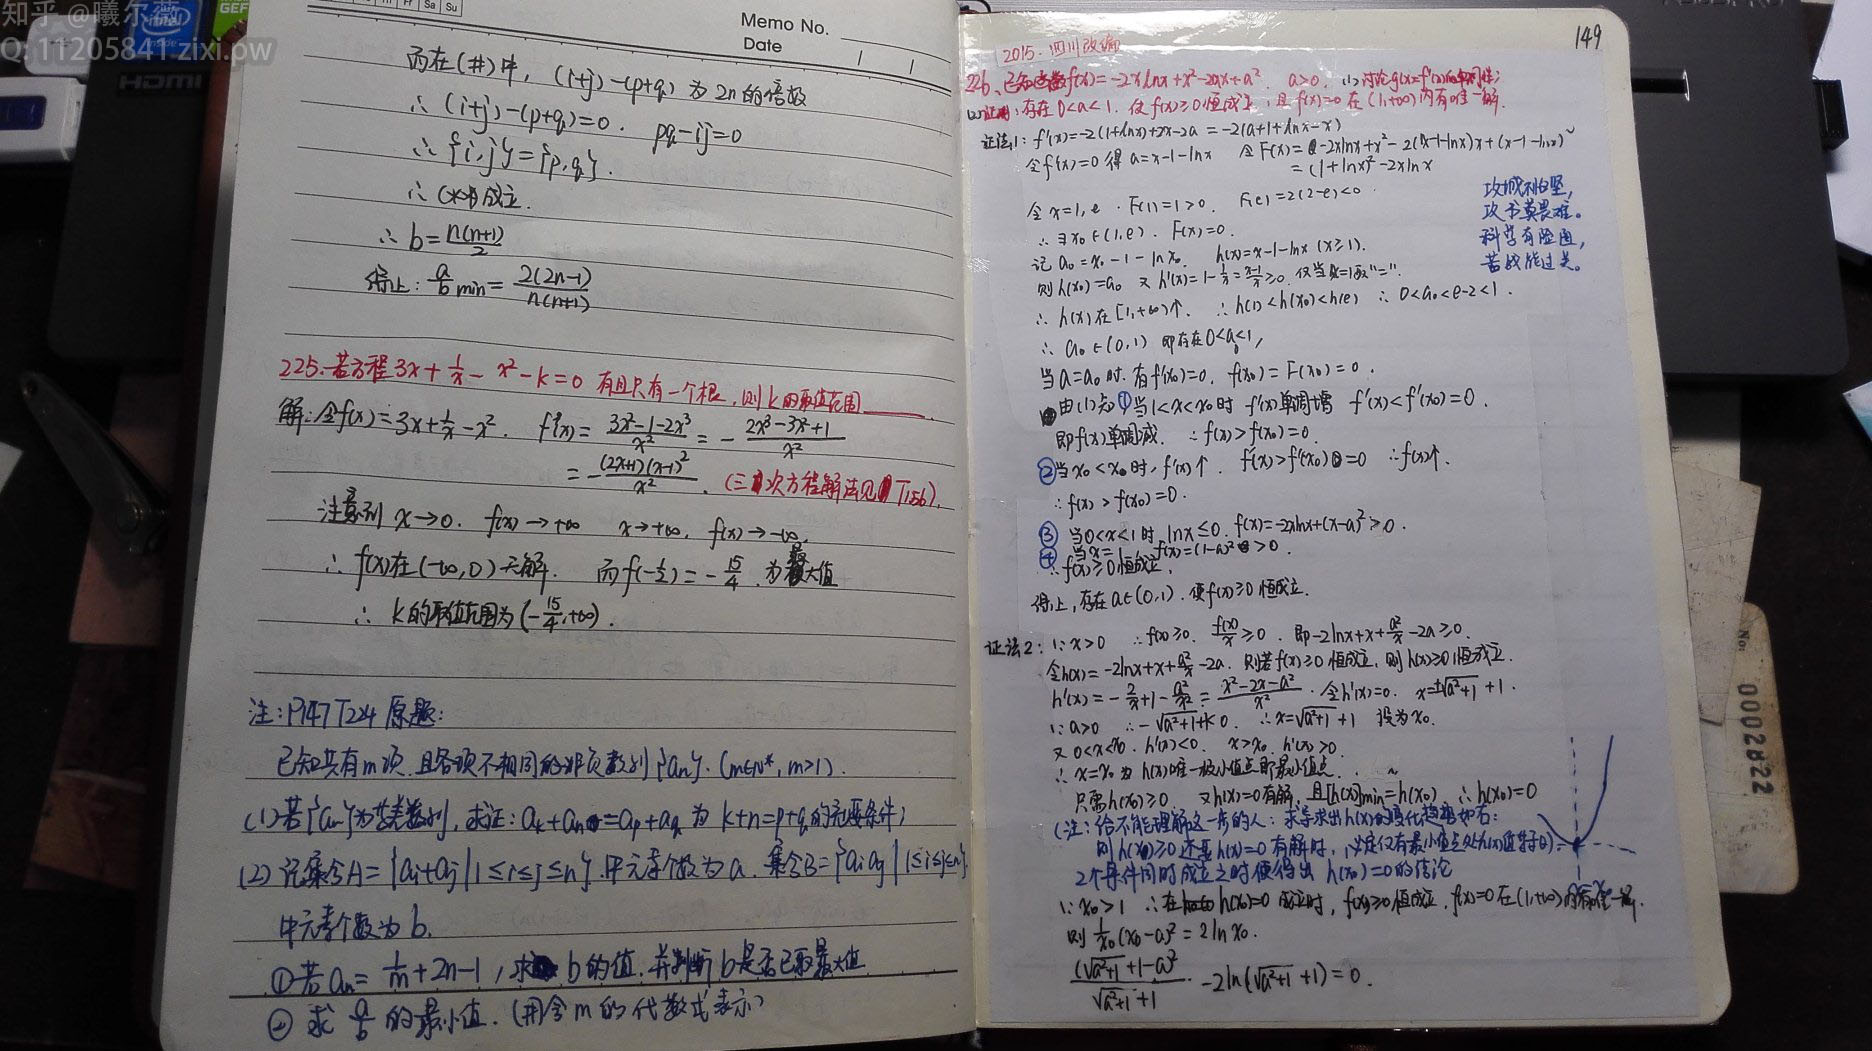 知乎 @曦尔
Q: 11205841.zixi.pw
intel
inside
HDMI
Fr Sa Su
Memo No.
Date
而在(#)中, (i+j)-(p+q) 为 2n 的倍数
∴ (i+j)-(p+q)=0. pq-ij=0
∴ {i,j}={p,q}.
∴ (**)成立.
∴ b=n(n+1)/2
得上: a/b min = 2(2n-1)/n(n+1)
225. 若方程 3x+1/x-x²-k=0 有且只有一个根, 则k的取值范围
解: 令f(x)=3x+1/x-x². f'(x)=(3x²-1-2x³)/x² = -(2x³-3x²+1)/x²
= -(2x+1)(x-1)²/x². (三次方程解法见 T156).
注意到 x→0. f(x)→+∞ x→+∞, f(x)→-∞,
∴ f(x)在(-∞,0)无解. 而f(-1/2)=-15/4. 为最大值
∴ k的取值范围为(-15/4,+∞).
注: P147 T224 原题:
已知共有m项, 且各项不相同的非负数列{an}. (m∈N*, m>1).
(1) 若{an}为等差数列, 求证: ak+an=ap+aq 为 k+n=p+q的充要条件;
(2) 记集合A={ai+aj|1≤i≤j≤n}.中元素个数为a. 集合B={aiaj|1≤i≤j≤n}
中元素个数为b.
① 若an=1/m+2n-1, 求b的值. 并判断b是否已取最大值
② 求 a/b 的最小值. (用含m的代数式表示)
149
2015.四川改编
226. 已知函数f(x)=-2xlnx+x²-2ax+a². a>0. (1) 讨论g(x)=f'(x)的单调性;
(2) 证明: 存在0<a<1. 使f(x)≥0恒成立, 且f(x)=0在(1,+∞)内有唯一解.
证法1: f'(x)=-2(1+lnx)+2x-2a=-2(a+1+lnx-x)
令f'(x)=0 得a=x-1-lnx 令F(x)=-2xlnx+x²-2(x-1-lnx)x+(x-1-lnx)²
=(1+lnx)²-2xlnx
令x=1,e. F(1)=1>0. F(e)=2(2-e)<0.
∴ ∃x₀∈(1,e). F(x)=0.
记a₀=x₀-1-lnx₀. h(x)=x-1-lnx (x≥1).
则h(x₀)=a₀ 又h'(x)=1-1/x=(x-1)/x≥0. 仅当x=1取"=".
∴ h(x)在[1,+∞)↑. ∴ h(1)<h(x₀)<h(e) ∴ 0<a₀<e-2<1.
∴ a₀∈(0,1) 即存在0<a₀<1,
当a=a₀时. 有f'(x₀)=0, f(x₀)=F(x₀)=0.
由(1)知 ①当1<x<x₀时 f'(x)单调增 f'(x)<f'(x₀)=0.
即f(x)单调减. ∴ f(x)>f(x₀)=0.
② 当x₀<x₀时, f'(x)↑. f'(x)>f'(x₀)=0 ∴f(x)↑.
∴ f(x)>f(x₀)=0.
③ 当0<x<1时, lnx≤0. f(x)=-2xlnx+(x-a)²>0.
④ 当x=1 f(x)=(1-a)²>0.
∴ f(x)≥0恒成立.
得上, 存在a∈(0,1). 使f(x)≥0恒成立.
攻城不怕坚,
攻书莫畏难。
科学有险阻,
苦战能过关。
证法2: ∵ x>0 ∴f(x)≥0. f(x)/x≥0. 即-2lnx+x+a²/x-2a≥0.
令h(x)=-2lnx+x+a²/x-2a. 则若f(x)≥0恒成立, 则h(x)≥0恒成立.
h'(x)=-2/x+1-a²/x²=(x²-2x-a²)/x². 令h'(x)=0. x=±√(a²+1)+1.
∵ a>0 ∴ -√(a²+1)+1<0. ∴ x=√(a²+1)+1 设为x₀.
又0<x<x₀. h'(x)<0. x>x₀, h'(x)>0.
∴ x=x₀为h(x)唯一极小值点即最小值点.
只需h(x₀)≥0 又h(x)=0有解, 且[h(x)]min=h(x₀). ∴ h(x₀)=0
(注: 给不能理解这一步的人: 求导求出h(x)的变化趋势如右:
则h(x₀)≥0 还要h(x)=0有解时, 必定仅有最小值点处h(x)值等于0).
2个条件同时成立之时便得出 h(x₀)=0的结论
∵ x₀>1 ∴在h(x₀)=0成立时, f(x)≥0恒成立, f(x)=0在(1,+∞)内有唯一解.
则 1/x₀(x₀-a)²=2lnx₀.
(√(a²+1)+1-a)²/(√(a²+1)+1) -2ln(√(a²+1)+1)=0.
No:
0002822
7